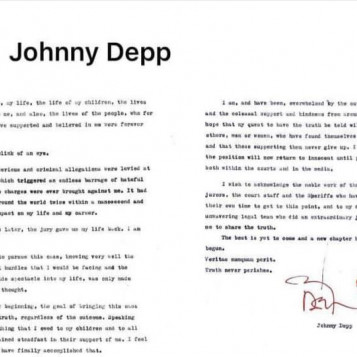 Johnny Depp
, my life, the life of my children, the lives
me, and also, the lives of the people, who for
ve supported and believed in me were forever
blink of an eye.
serious and criminal allegations were levied at
which triggered an endless barrage of hateful
charges were ever brought against me. It had
around the world twice within a nanosecond and
mpact on my life and my career.
later, the jury gave me my life back. I am
to pursue this case, knowing very well the
l hurdles that I would be facing and the
spectacle into my life, was only made
thought.
beginning, the goal of bringing this case
truth, regardless of the outcome. Speaking
thing that I owed to my children and to all
ained steadfast in their support of me. I feel
have finally accomplished that.
I am, and have been, overwhelmed by the ou
and the colossal support and kindness from aroun
hope that my quest to have the truth be told will
others, men or women, who have found themselves
and that those supporting them never give up. I
the position will now return to innocent until p
both within the courts and in the media.
I wish to acknowledge the noble work of th
jurors, the court staff and the Sheriffs who hav
their own time to get to this point, and to my d
unwavering legal team who did an extraordinary j
me to share the truth.
The best is yet to come and a new chapter
begun.
Veritas numquam perit.
Truth never perishes.
Johnny Depp